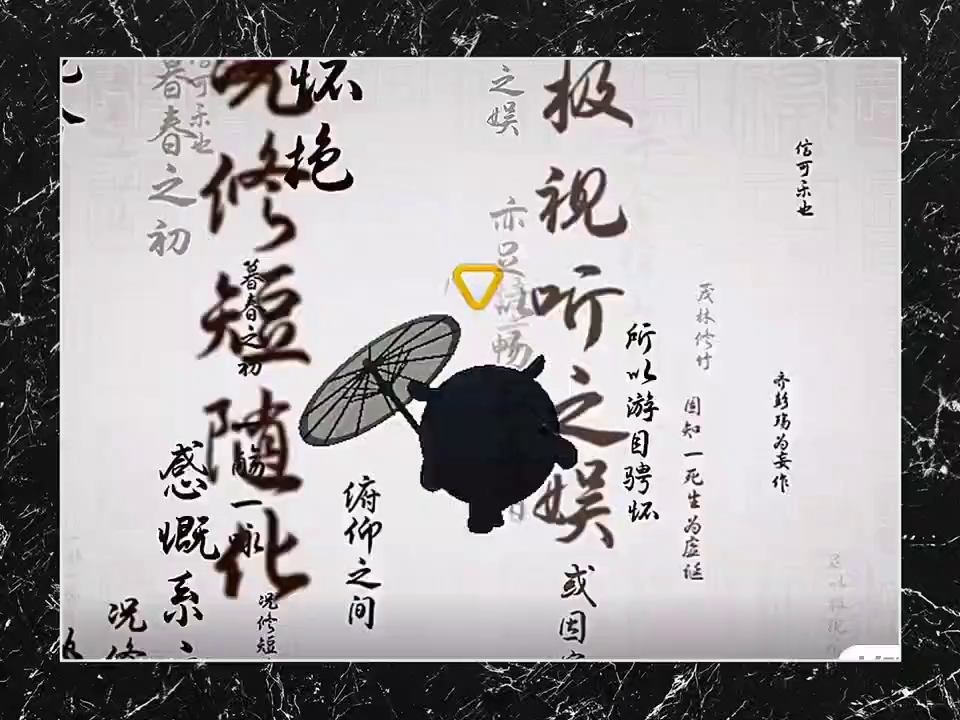 信可乐也
齐彭殇为妄作
茂林修竹
固知一死生为虚诞
所以游目骋怀
极视听之娱
或因
之娱
亦足以畅
俯仰之间
怀抱
况修短随化
暮春之初
觞一咏
况修短
可乐也
暮春之初
感慨系
况修